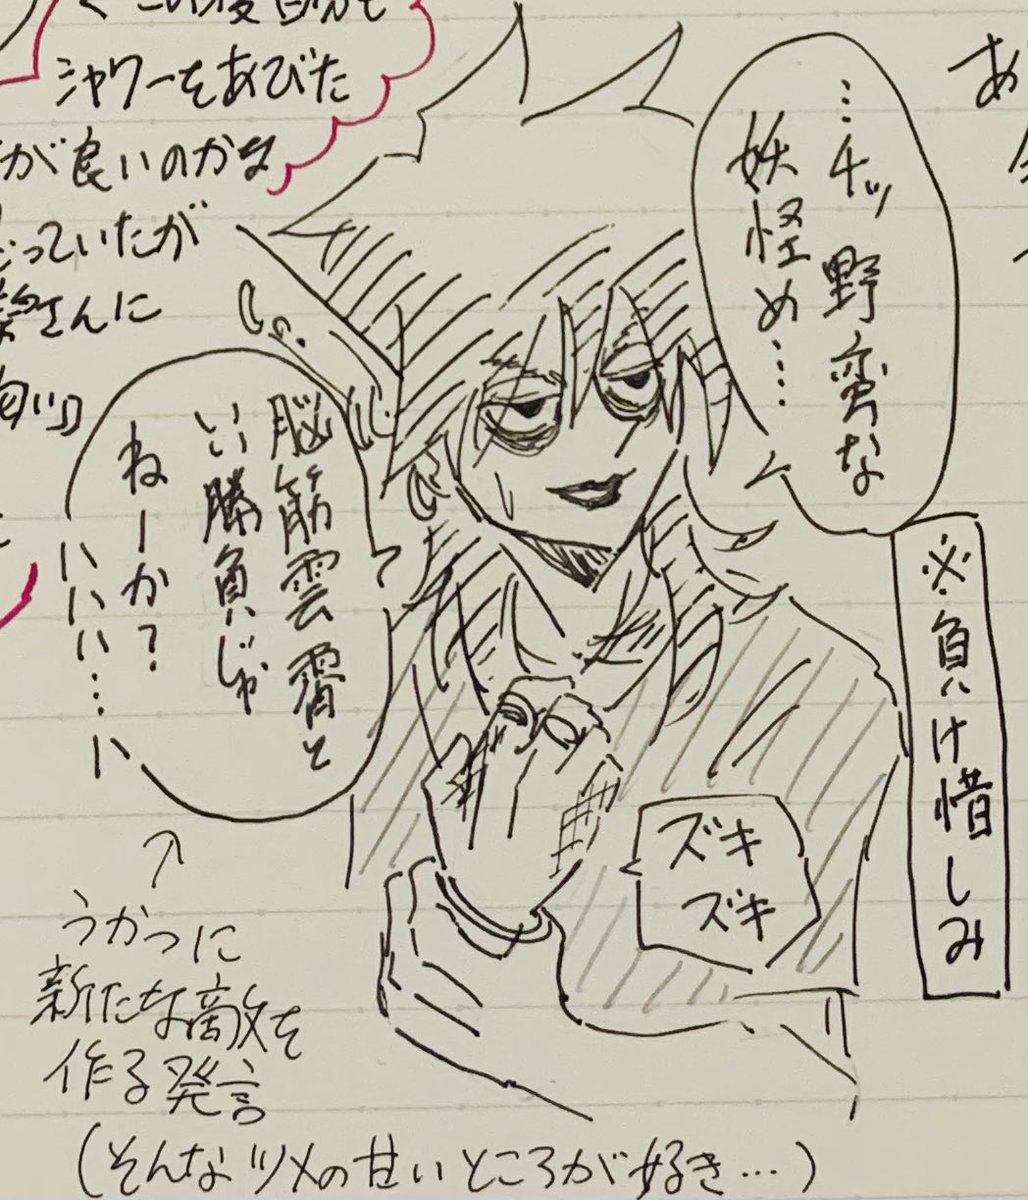 シャワーをあびた
が良いのかな
っていたが
さんに
…チッ野蛮な
妖怪め……
※負け惜しみ
脳筋雲霄と
い勝負じゃ
ねーか?
ハハハ…ハ
ズキ
ズキ
うかつに
新たな敵を
作る発言
(そんなツメの甘いところが好き…)